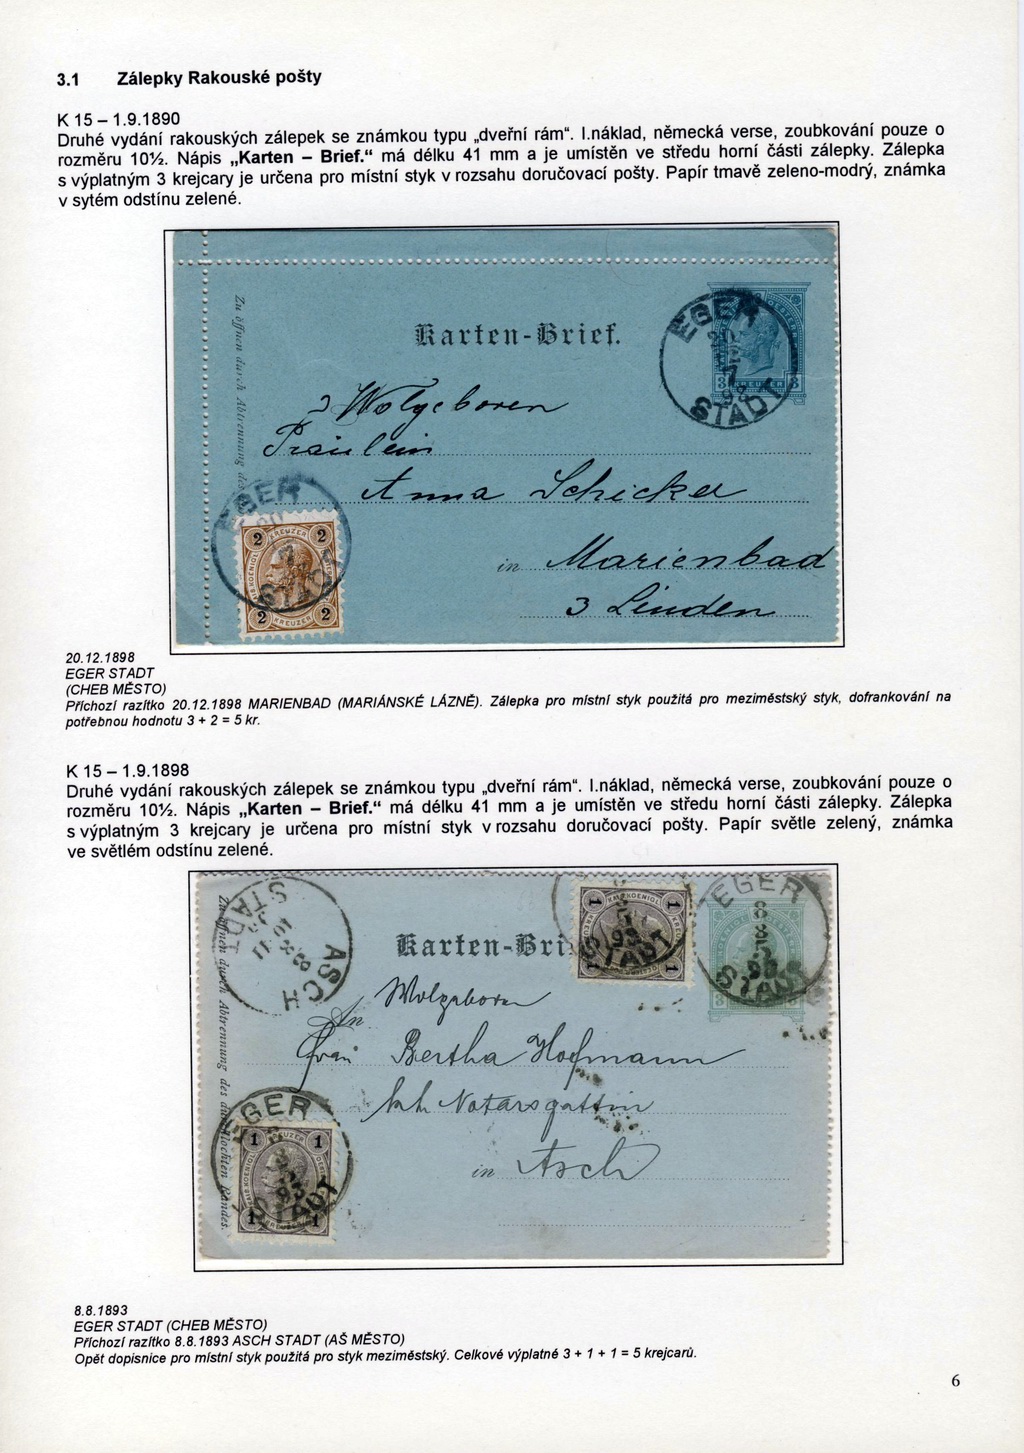 3.1 Zálepky Rakouské pošty
K 15 – 1.9.1890
Druhé vydání rakouských zálepek se známkou typu „dveřní rám“. I.náklad, německá verse, zoubkování pouze o
rozměru 10½. Nápis „Karten – Brief.“ má délku 41 mm a je umístěn ve středu horní části zálepky. Zálepka
s výplatným 3 krejcary je určena pro místní styk v rozsahu doručovací pošty. Papír tmavě zeleno-modrý, známka
v sytém odstínu zelené.
Karten-Brief.
Zu öffnen durch Abtrennung des
EGER
STADT
3 KREUZER 3
Wolgeboren
Fräulein
Anna Schickel
in Marienbad
3 Linden
EGER
2 KREUZER 2
2 KREUZER 2
20.12.1898
EGER STADT
(CHEB MĚSTO)
Příchozí razítko 20.12.1898 MARIENBAD (MARIÁNSKÉ LÁZNĚ). Zálepka pro místní styk použitá pro meziměstský styk, dofrankování na
potřebnou hodnotu 3 + 2 = 5 kr.
K 15 – 1.9.1898
Druhé vydání rakouských zálepek se známkou typu „dveřní rám“. I.náklad, německá verse, zoubkování pouze o
rozměru 10½. Nápis „Karten – Brief.“ má délku 41 mm a je umístěn ve středu horní části zálepky. Zálepka
s výplatným 3 krejcary je určena pro místní styk v rozsahu doručovací pošty. Papír světle zelený, známka
ve světlém odstínu zelené.
ASCH
STADT
Karten-Bri
STADT
EGER
8
8
93
STADT
Wolgeborn
An
Frau Bertha Hofmann
k.k. Notarsgattin
in Asch
EGER
1 KREUZER 1
93
STADT
8.8.1893
EGER STADT (CHEB MĚSTO)
Příchozí razítko 8.8.1893 ASCH STADT (AŠ MĚSTO)
Opět dopisnice pro místní styk použitá pro styk meziměstský. Celkové výplatné 3 + 1 + 1 = 5 krejcarů.
6